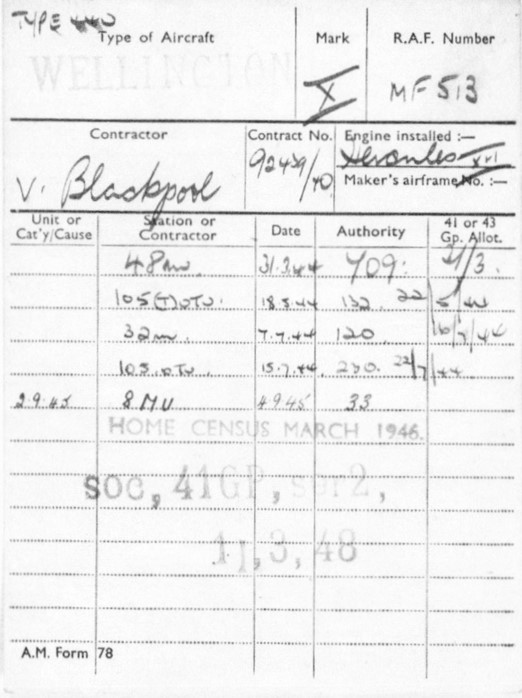 TYPE 440
Type of Aircraft Mark R.A.F. Number
WELLINGTON X MF 513
Contractor Contract No. Engine installed :—
V. Blackpool 92439/40 Hercules XVI
Maker's airframe No. :—
Unit or Cat'y/Cause Station or Contractor Date Authority 41 or 43 Gp. Allot.
48 MU. 31.3.44 709. 21/3.
105 (T) OTU. 18.5.44 132 22/5/44
32 MU. 7.7.44 120 16/7/44
105 OTU 15.7.44 230. 22/7/44
2.9.45 8 MU 4.9.45 33
HOME CENSUS MARCH 1946.
SOC, 41GP, ser2,
11,3,48
A.M. Form 78